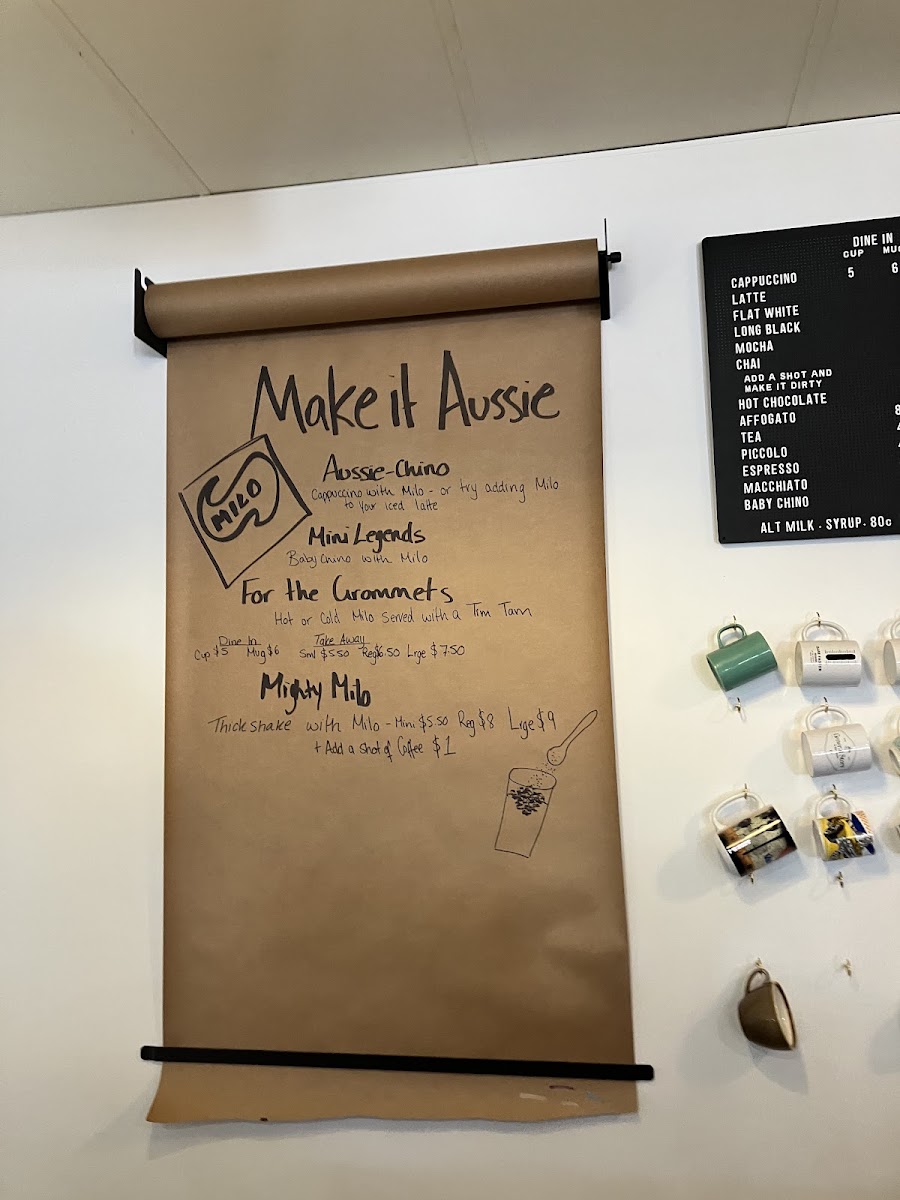 Make it Aussie
MILO
Aussie-Chino
Cappuccino with Milo - or try adding Milo
to your iced latte
Mini Legends
Baby Chino with Milo
For the Grommets
Hot or Cold Milo Served with a Tim Tam
Dine In Take Away
Cup $5 Mug $6 Sml $5.50 Reg $6.50 Lrge $7.50
Mighty Milo
Thickshake with Milo - Mini $5.50 Reg $8 Lrge $9
+ Add a shot of Coffee $1
DINE IN
CUP MUG
CAPPUCCINO 5 6
LATTE
FLAT WHITE
LONG BLACK
MOCHA
CHAI
ADD A SHOT AND
MAKE IT DIRTY
HOT CHOCOLATE
AFFOGATO
TEA
PICCOLO
ESPRESSO
MACCHIATO
BABY CHINO
ALT MILK · SYRUP · 80c